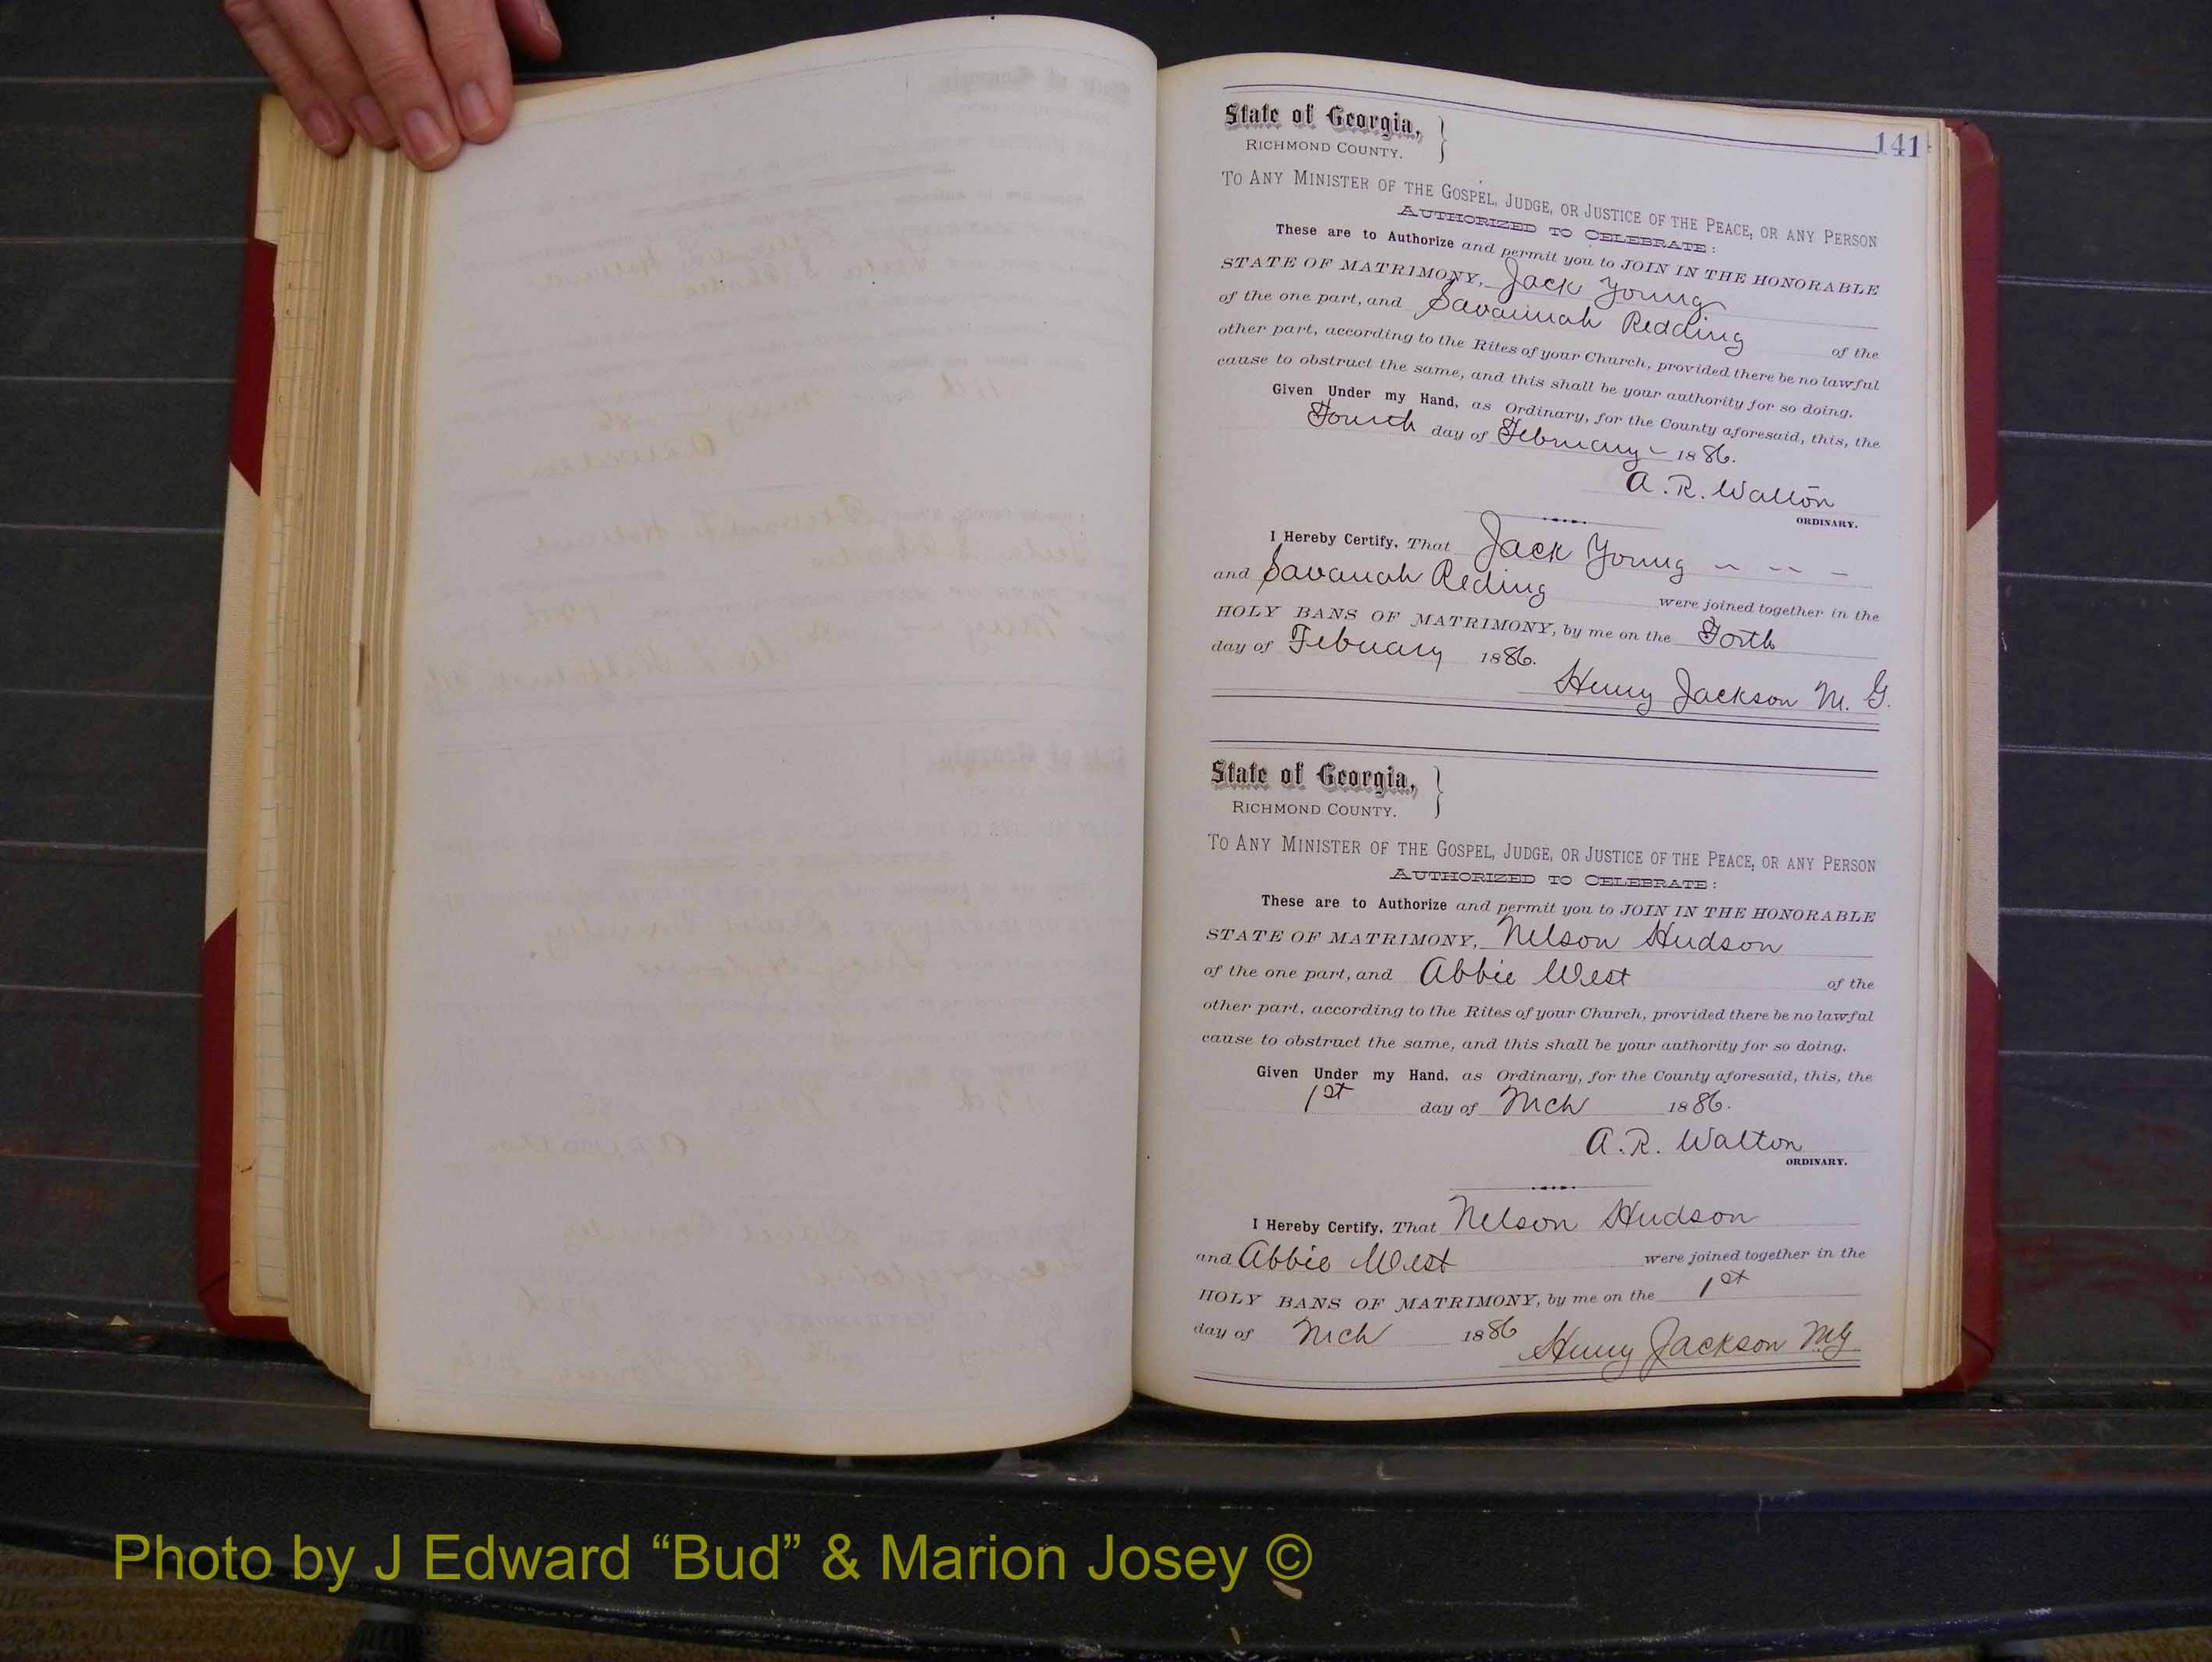 141
State of Georgia,
RICHMOND COUNTY.
TO ANY MINISTER OF THE GOSPEL, JUDGE, OR JUSTICE OF THE PEACE, OR ANY PERSON
AUTHORIZED TO CELEBRATE:
These are to Authorize and permit you to JOIN IN THE HONORABLE
STATE OF MATRIMONY, Jack Young
of the one part, and Savannah Redding of the
other part, according to the Rites of your Church, provided there be no lawful
cause to obstruct the same, and this shall be your authority for so doing.
Given Under my Hand, as Ordinary, for the County aforesaid, this, the
Fourth day of February 1886.
A. R. Walton
ORDINARY.
I Hereby Certify, That Jack Young
and Savanah Reding were joined together in the
HOLY BANS OF MATRIMONY, by me on the Forth
day of Febuary 1886.
Henry Jackson M. G.
State of Georgia,
RICHMOND COUNTY.
TO ANY MINISTER OF THE GOSPEL, JUDGE, OR JUSTICE OF THE PEACE, OR ANY PERSON
AUTHORIZED TO CELEBRATE:
These are to Authorize and permit you to JOIN IN THE HONORABLE
STATE OF MATRIMONY, Nelson Hudson
of the one part, and Abbie West of the
other part, according to the Rites of your Church, provided there be no lawful
cause to obstruct the same, and this shall be your authority for so doing.
Given Under my Hand, as Ordinary, for the County aforesaid, this, the
1st day of Mch 1886.
A. R. Walton
ORDINARY.
I Hereby Certify, That Nelson Hudson
and Abbie West were joined together in the
HOLY BANS OF MATRIMONY, by me on the 1st
day of Mch 1886 Henry Jackson MG
Photo by J Edward “Bud” & Marion Josey ©